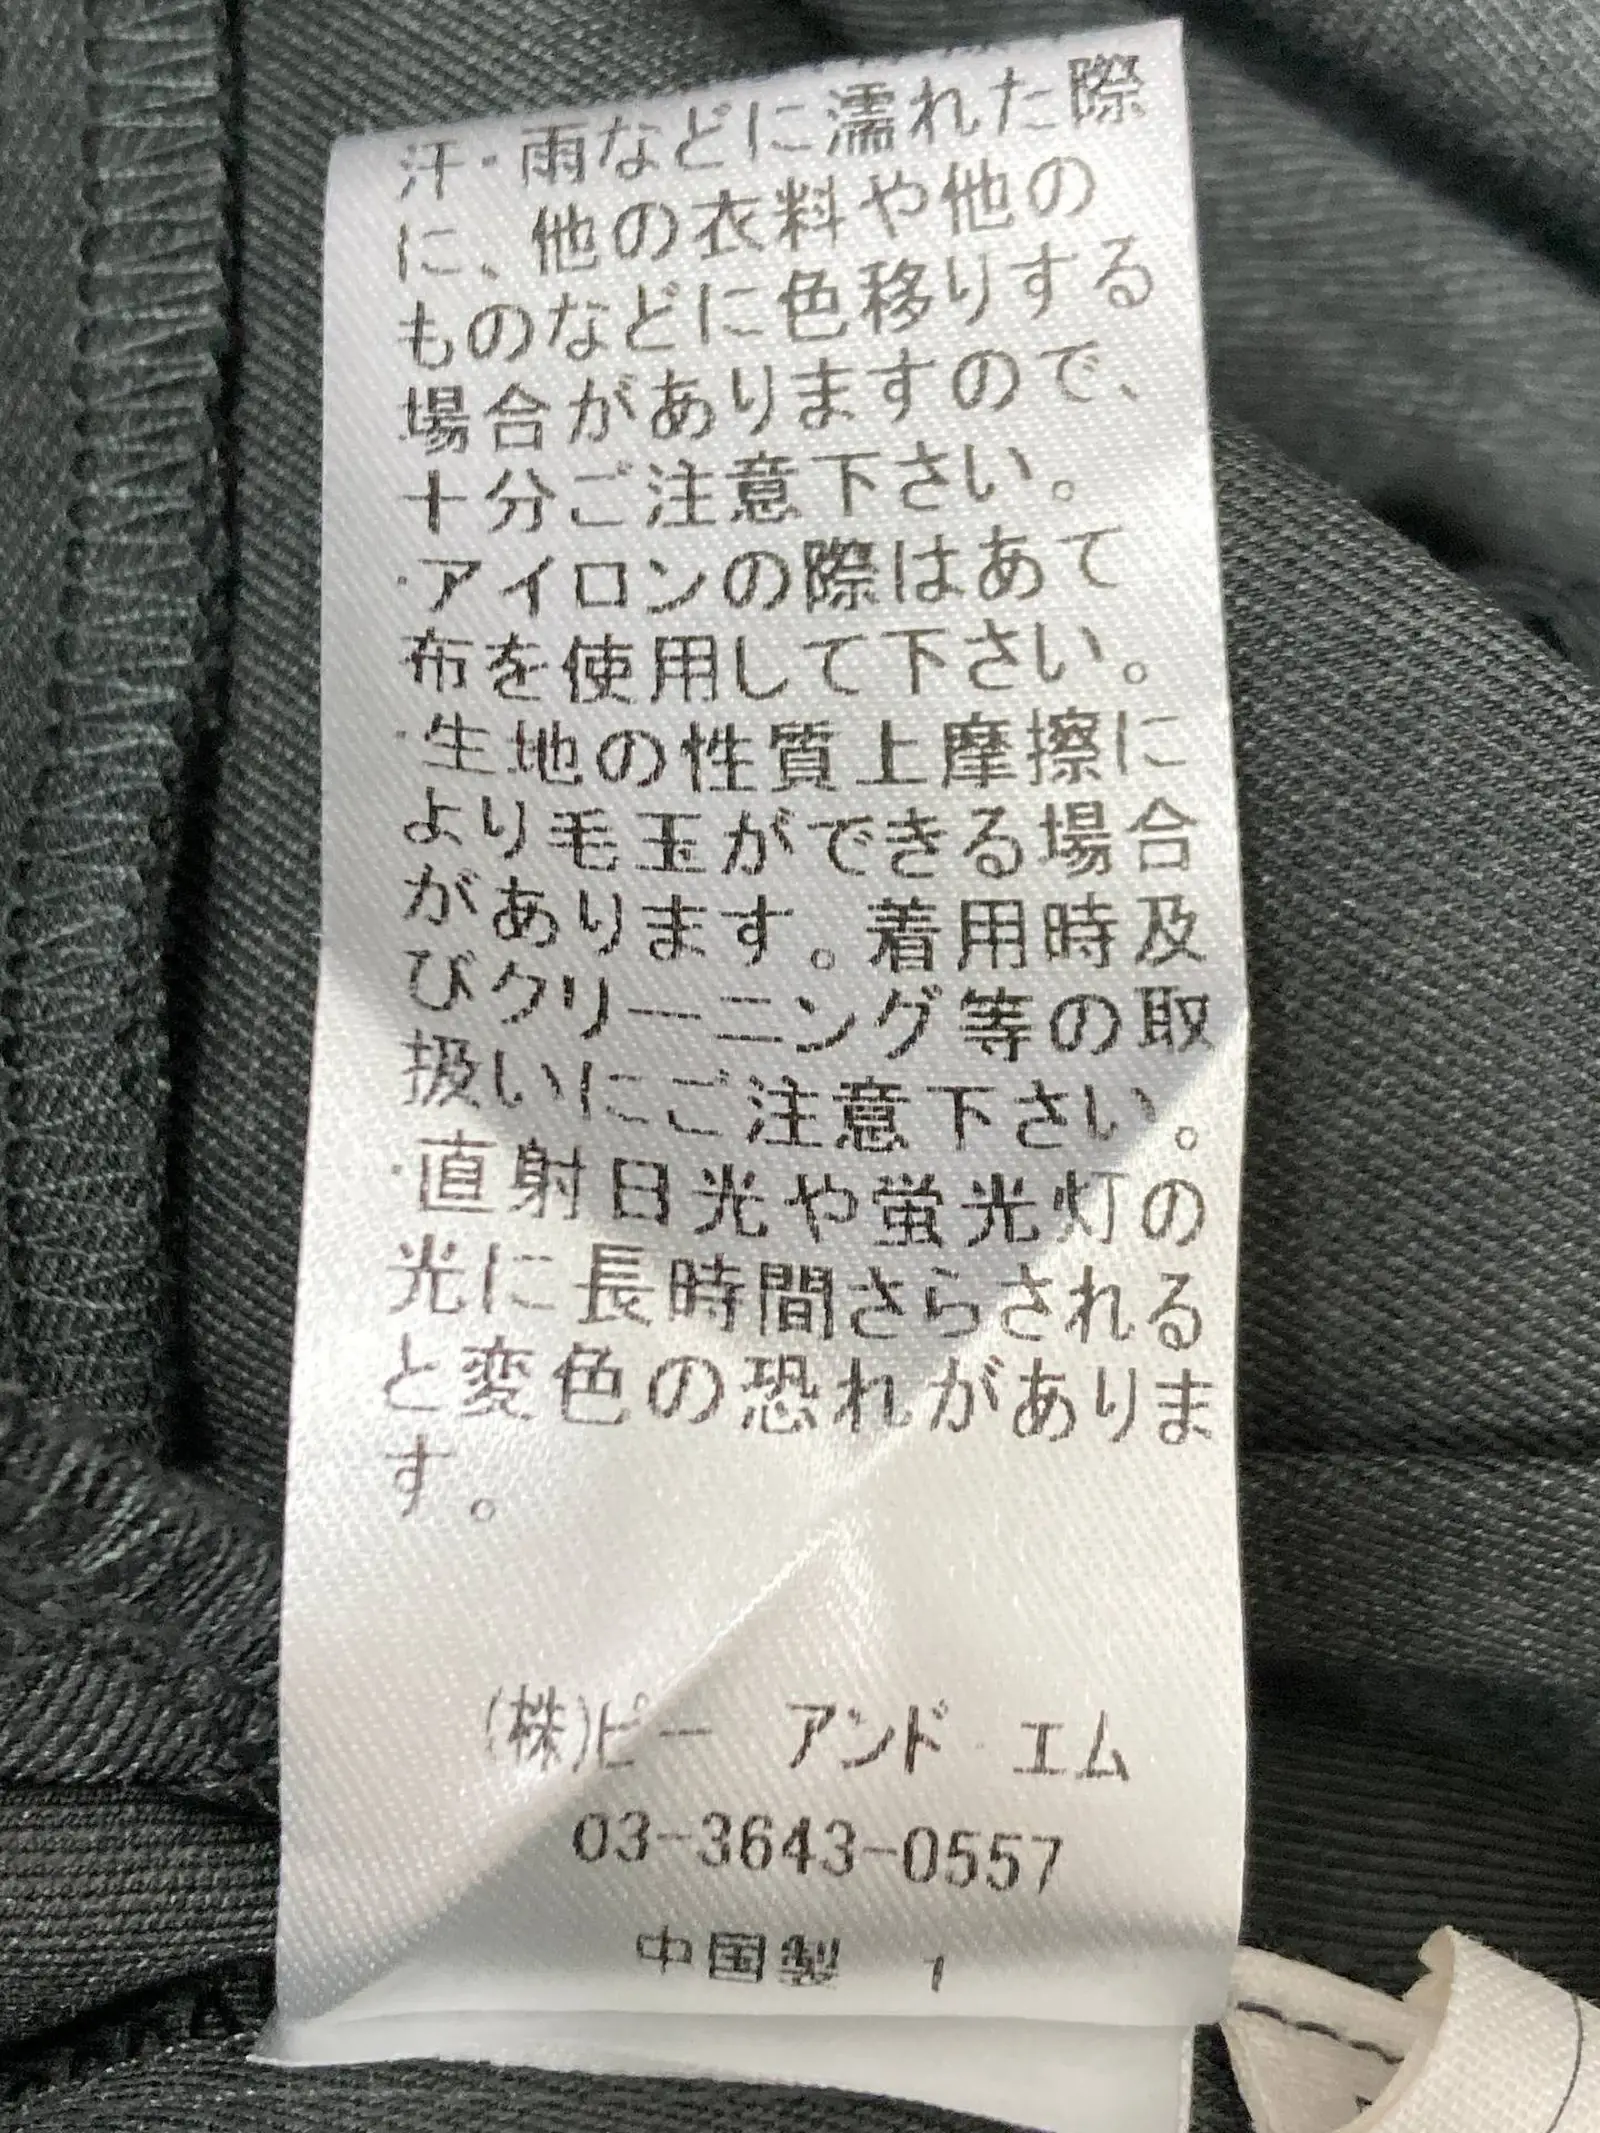 汗・雨などに濡れた際
に、他の衣料や他の
ものなどに色移りする
場合がありますので、
十分ご注意下さい。
・アイロンの際はあて
布を使用して下さい。
・生地の性質上摩擦に
より毛玉ができる場合
があります。着用時及
びクリーニング等の取
扱いにご注意下さい。
・直射日光や蛍光灯の
光に長時間さらされる
と変色の恐れがありま
す。
(株)ピー アンド エム
03-3643-0557
中国製 1